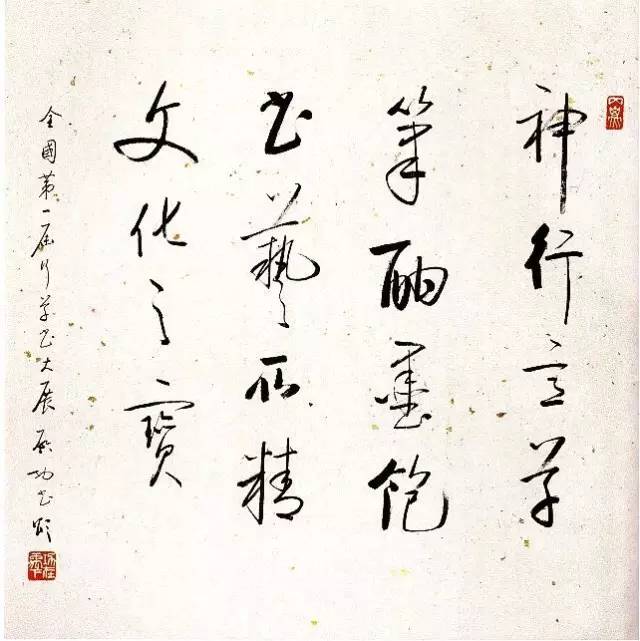 神行言草
笔酣墨饱
书艺所精
文化之宝
全國第一届行草书大展 启功书颂